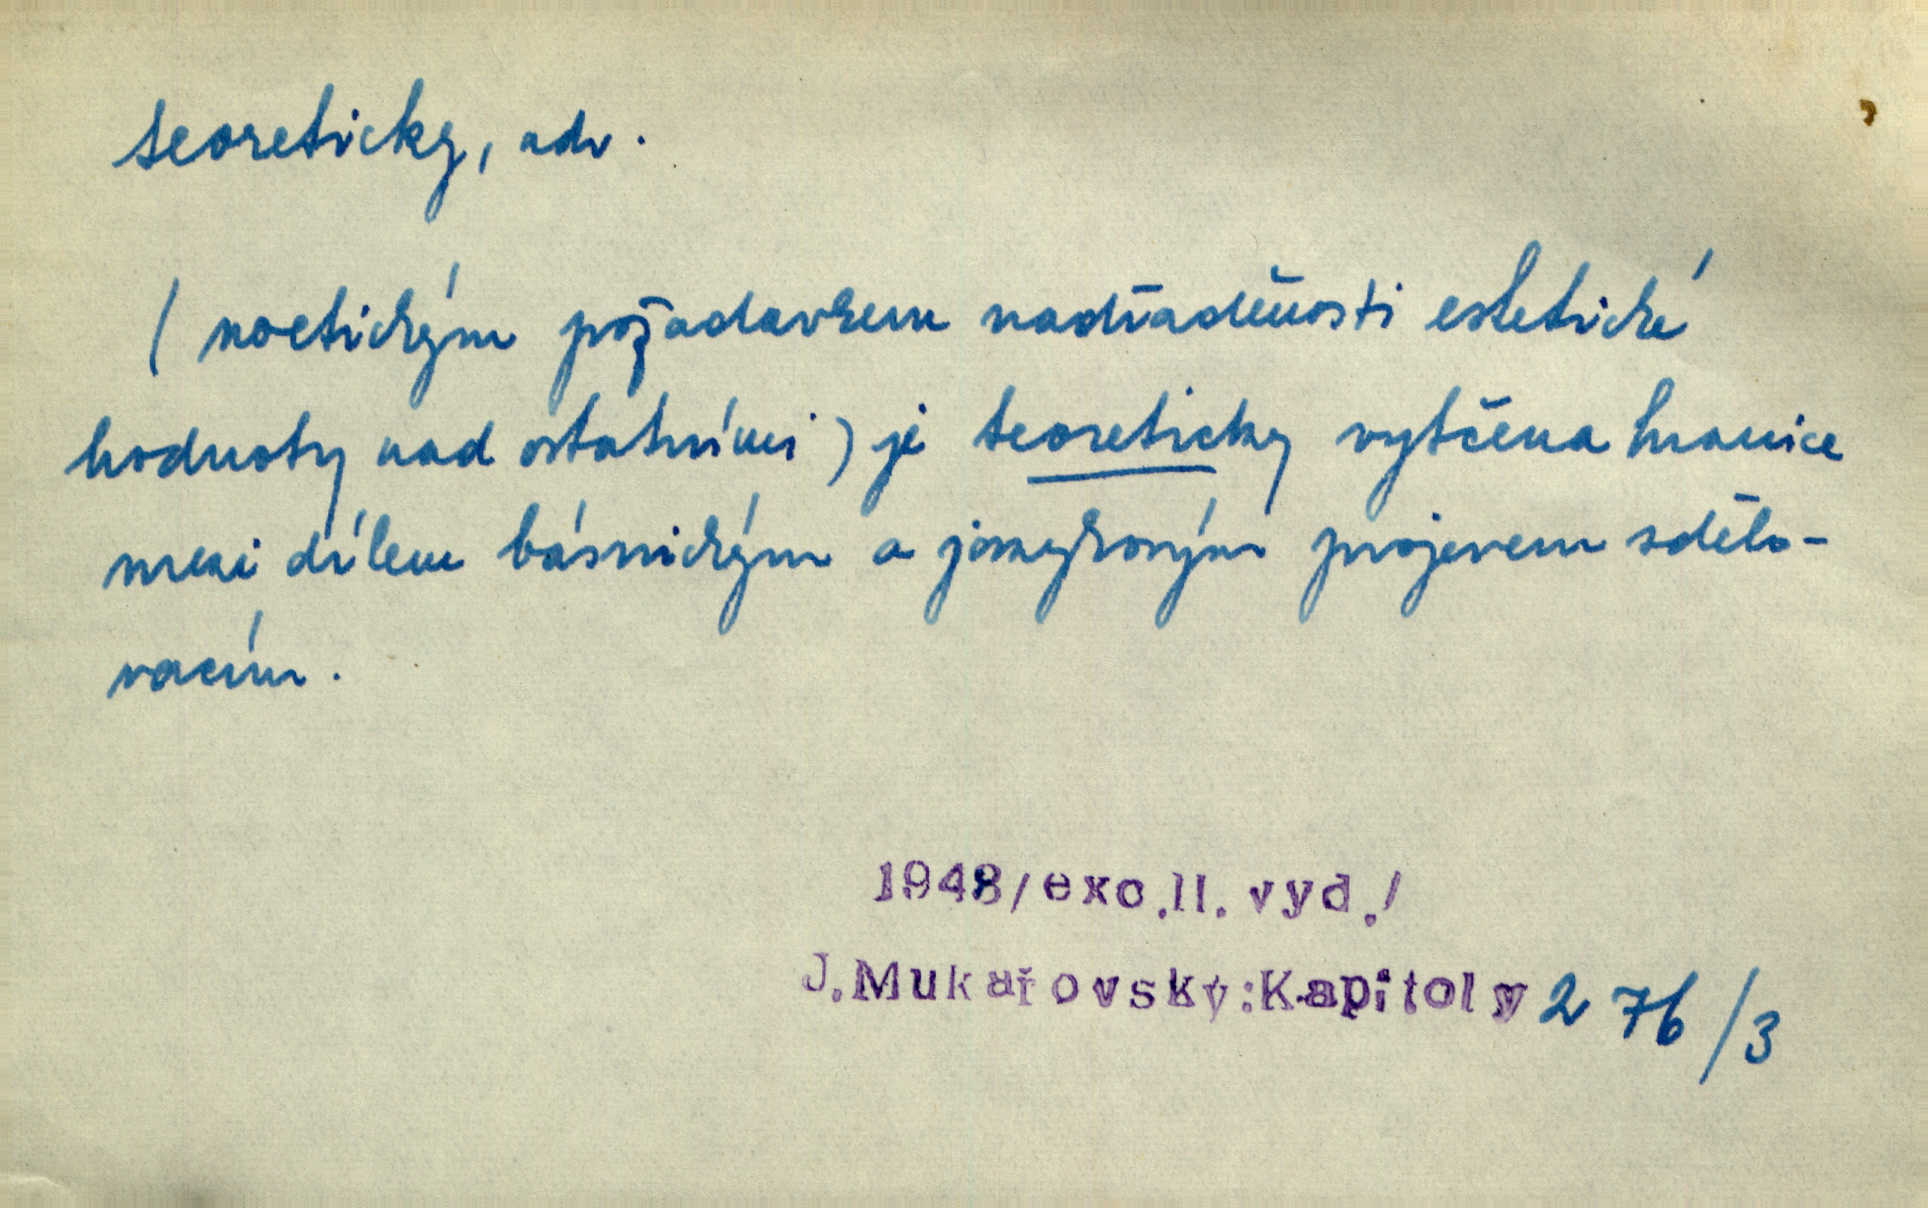 teoreticky, adv.
( noetickým požadavkem nadřaděnosti estetické
hodnoty nad ostatními ) je teoreticky vytčena hranice
mezi dílem básnickým a jazykovým projevem sdělo-
vacím.
1948/exc.II. vyd./
J.Mukařovský:Kapitoly 2 76/3